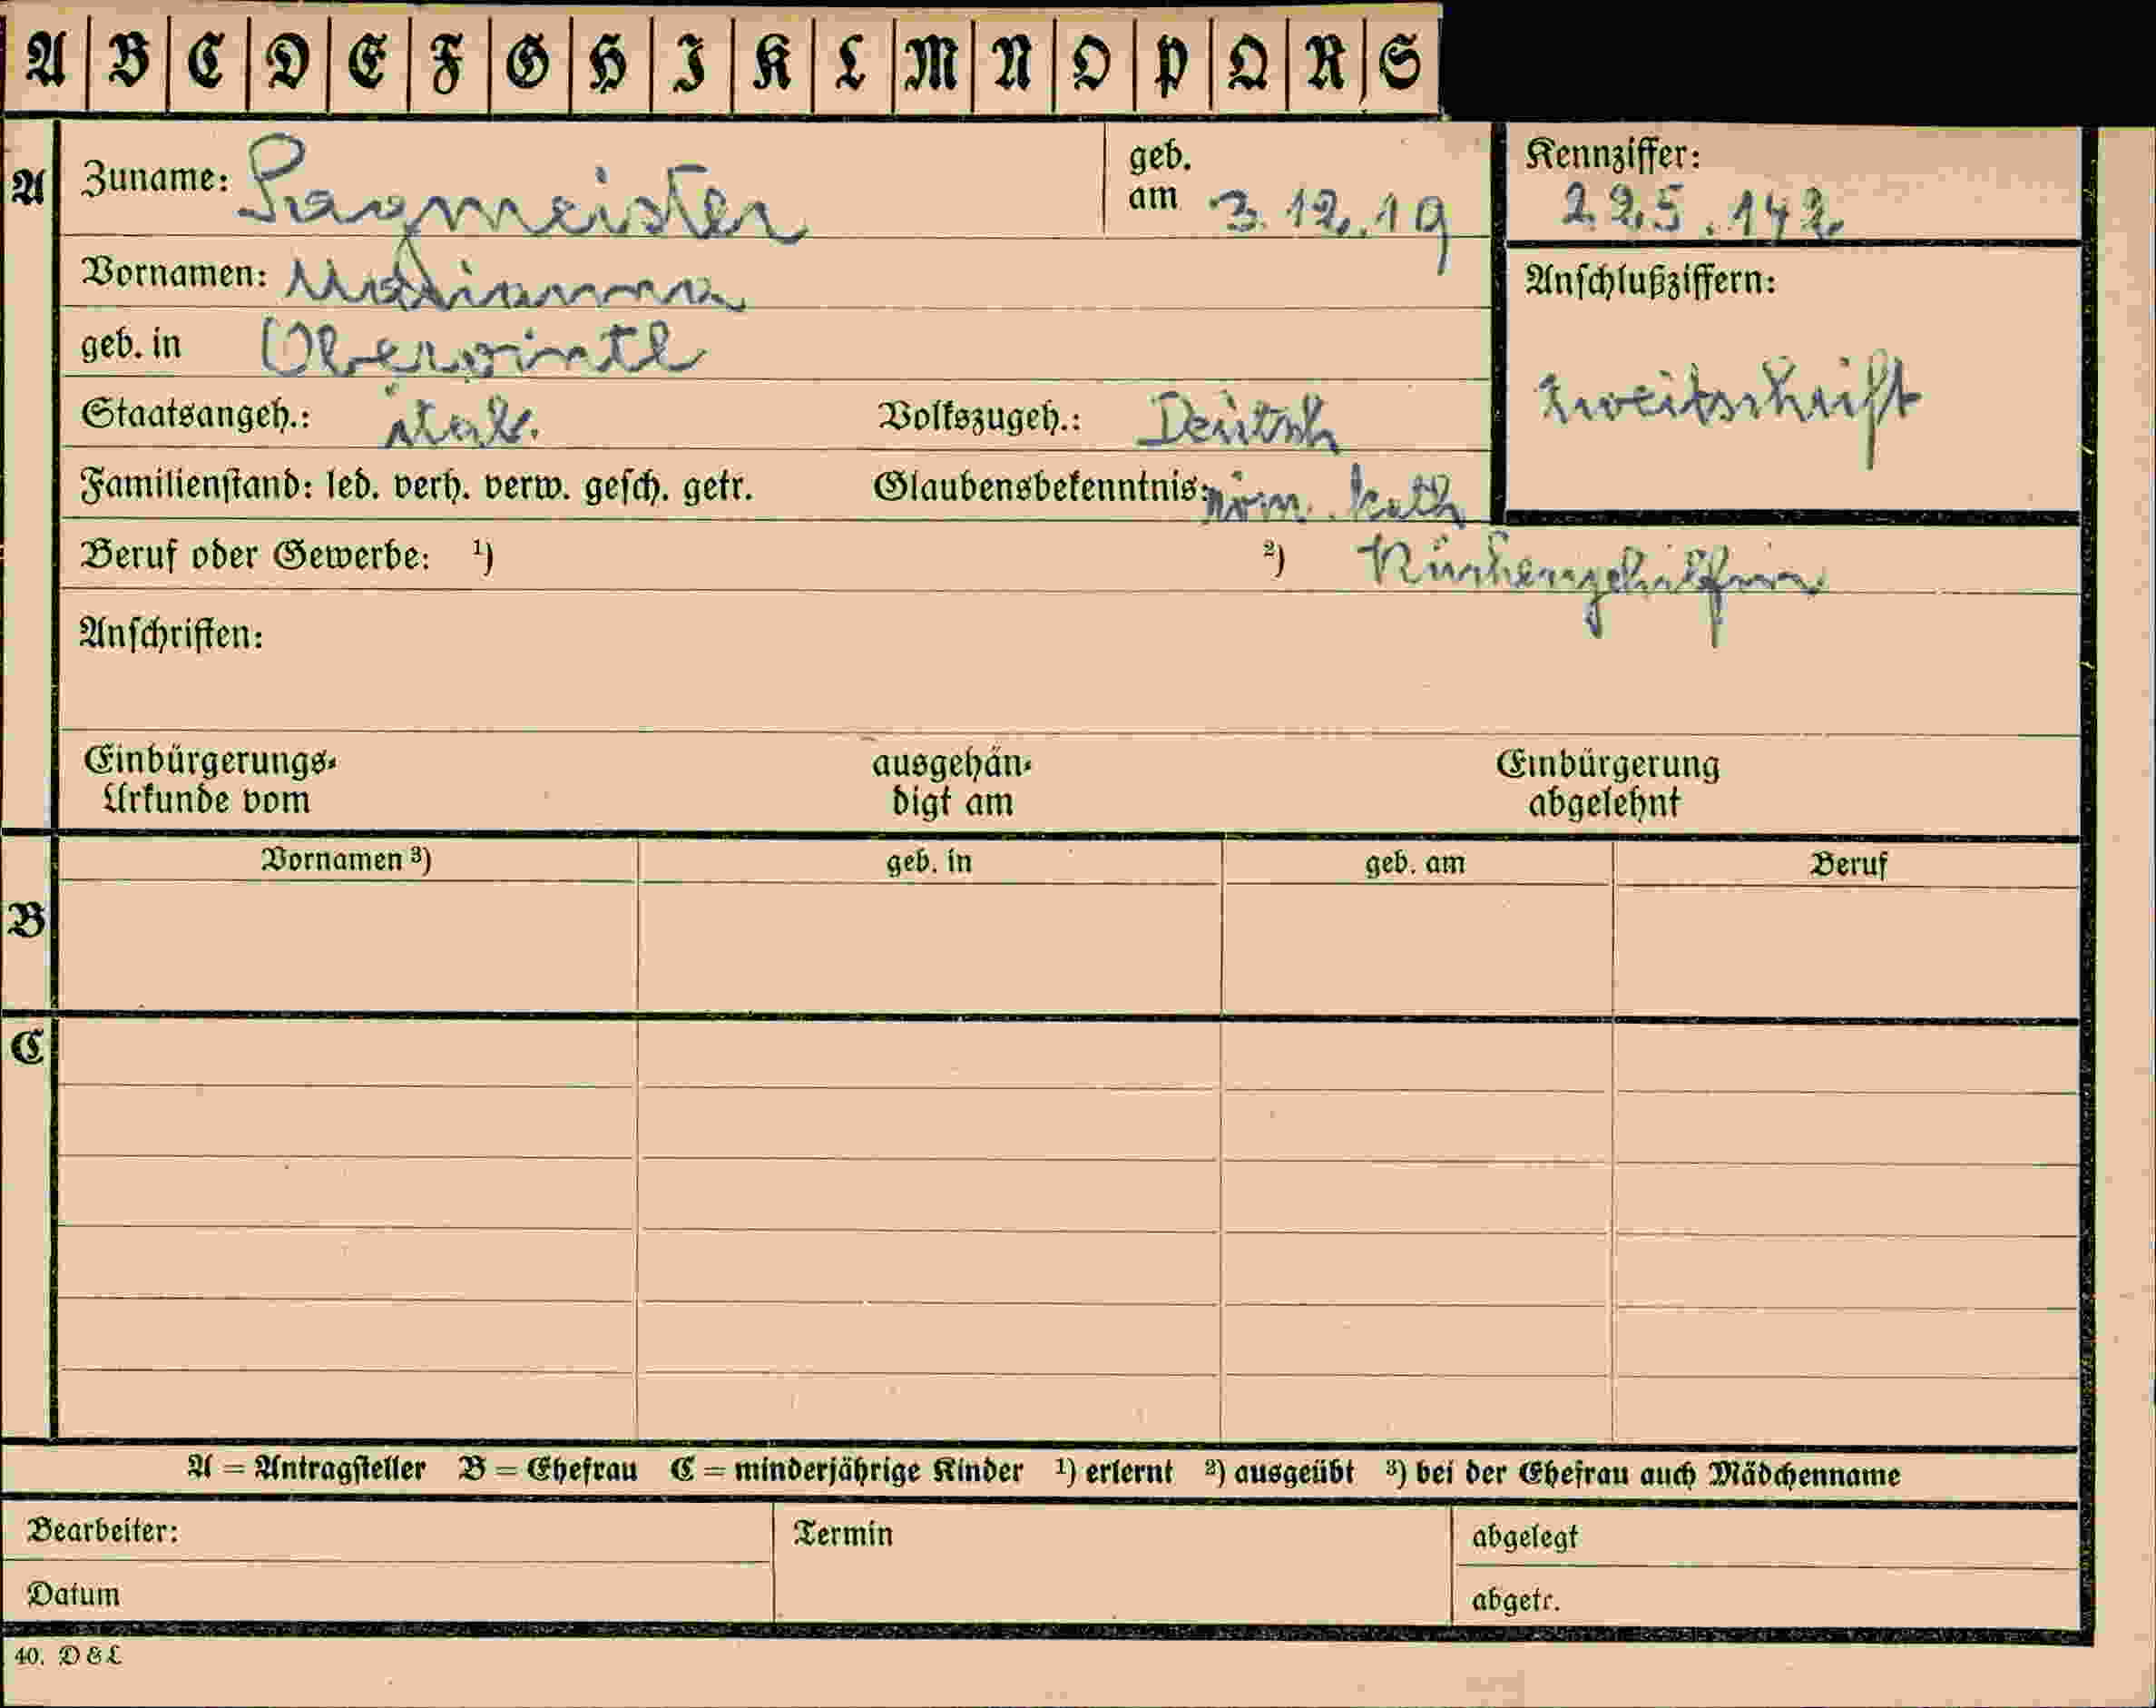 A B C D E F G H I K L M N O P Q R S
A Zuname: Sagmeister geb. am 3.12.19 Kennziffer: 225.142
Vornamen: Marianna Anschlußziffern:
geb. in Obervintl
Staatsangeh.: ital. Volkszugeh.: Deutsch Zweitschrift
Familienstand: led. verh. verw. gesch. getr. Glaubensbekenntnis: röm. kath
Beruf oder Gewerbe: ¹) ²) Küchengehilfin
Anschriften:
Einbürgerungs- ausgehän- Einbürgerung
Urkunde vom digt am abgelehnt
Vornamen ³) geb. in geb. am Beruf
B
C
A = Antragsteller B = Ehefrau C = minderjährige Kinder ¹) erlernt ²) ausgeübt ³) bei der Ehefrau auch Mädchenname
Bearbeiter: Termin abgelegt
Datum abgetr.
40. D & L